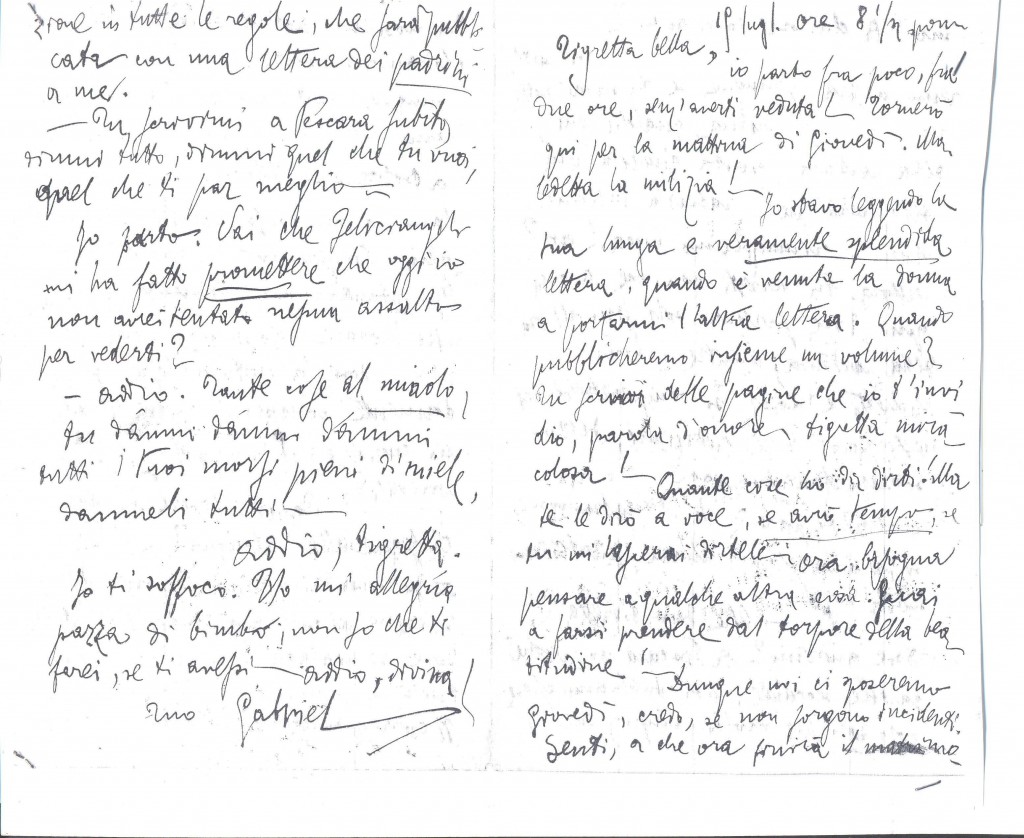 19 lugl. ore 8 1/2 pom
Tigretta bella,
io parto fra poco, fra
due ore, senz'averti veduta! Tornerò
qui per la mattina di Giovedì. Ma
ledetta la milizia!
Io stavo leggendo la
tua lunga e veramente splendida
lettera, quando è venuta la donna
a portarmi l'altra lettera. Quando
pubblicheremo insieme un volume?
Tu scrivi delle pagine che io t'invi
dio, parola d'onore, tigretta mira
colosa!
Quante cose ho da dirti! Ma
te le dirò a voce, se avrò tempo, se
tu mi lascerai dirtele – ora bisogna
pensare a qualche altra cosa. Guai
a farsi prendere dal torpore della bea
titudine!
Dunque noi ci
Giovedì, credo, se non sorgono incidenti.
Senti, a che ora finirà il
zione in tutte le regole, che sarà pubbli
cata con una lettera dei padrini
a me.
— Tu scrivimi a Pescara subito,
dimmi tutto, dimmi quel che tu vuoi,
quel che ti par meglio —
Io parto. Sai che
mi ha fatto promettere che oggi io
non avrei tentato nessun assalto
per vederti?
— addio. Tante cose al
tu dammi dammi dammi
tutti i tuoi morsi pieni di miele,
dammeli tutti! —
addio, tigretta.
Io ti soffoco. Ho un' allegria
pazza di bimbo; non so che ti
farei, se ti avessi — addio, divina!
tuo Gabriel